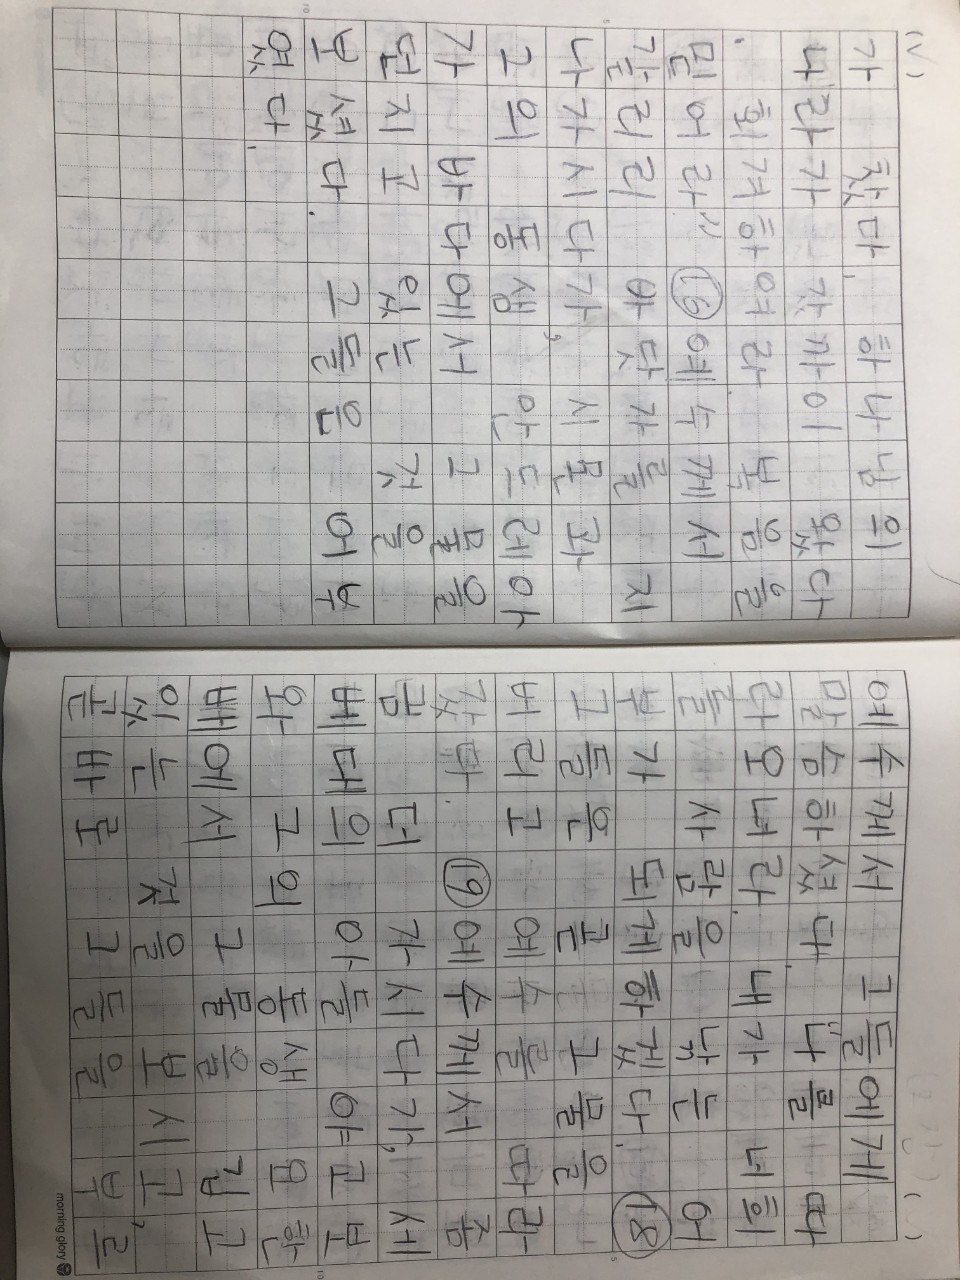 (√)
가 찼다, 하나님의
나라가 가까이 왔다
. 회개하여라 복음을
믿어라" ⑯ 예수께서
갈리리 바닷가를 지
나가시다가, 시몬과
그의 동생 안드레아
가 바다에서 그물을
던지고 있는 것을
보셨다. 그들은 어부
였다.
예수께서 그들에게
말슴하셨다. "나를 따
라오너라. 내가 너희
를 사람을 낚는 어
부가 되게하겠다. ⑱
그들은 곧 그물을
버리고 예수를 따라
갔다. ⑲ 예수께서 좀
금 더 가시다가, 세
베대의 아들 야고보
와 그의 동생 요한
배에서 그물을 깁고
있는 것을 보시고,
곧바로 그들을 부르
morning glory